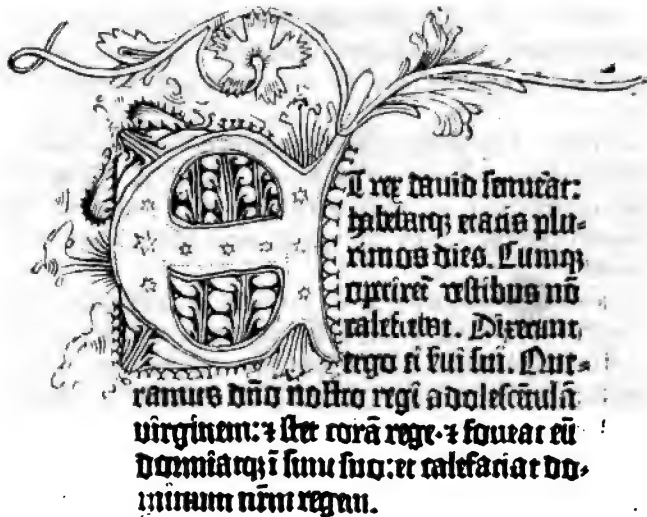 ET rex dauid senuerat:
habebatqꝫ etatis plu-
rimos dies. Cumqꝫ
operiret᷑ vestibus nō
calefiebat. Dixerunt
ergo ei ẜui sui. Que-
ramus dn̄o nostro regi adolescētulā
uirginem: ⁊ stet corā rege· ⁊ foueat eū
dormiatqꝫ ī sinu suo: et calefaciat do-
minum nr̄m regem.